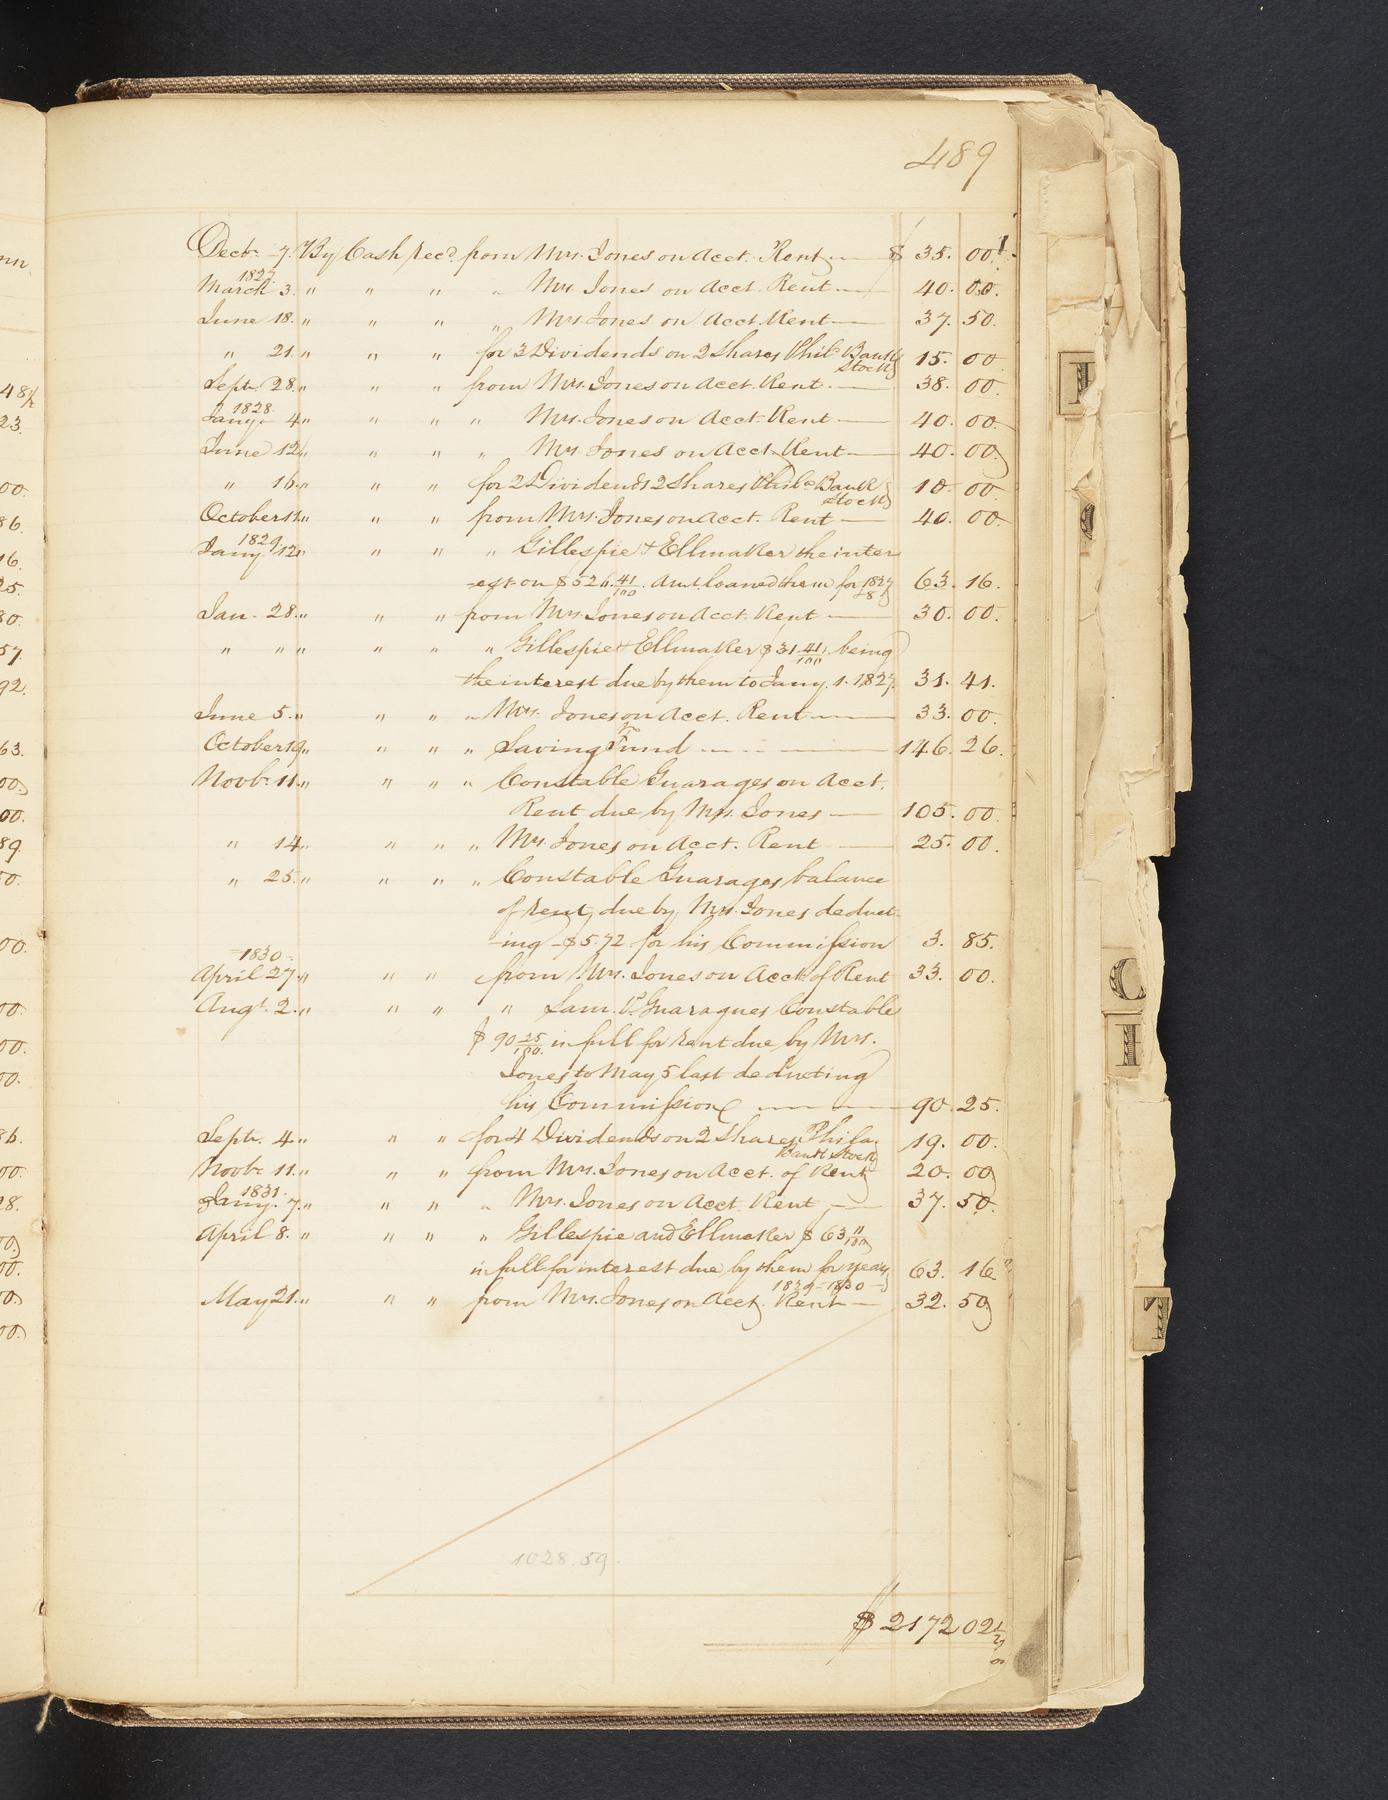 489
Decbr. 7. By Cash recd. from Mrs. Jones on Acct. Rent $ 35. 00
1827
March 3. " " " " Mrs. Jones on Acct. Rent 40. 00.
June 18. " " " " Mrs. Jones on Acct. Rent 37. 50.
" 21. " " " for 3 Dividends on 2 Shares Phila. Bank Stock 15. 00
Sept. 28. " " " from Mrs. Jones on Acct. Rent. 38. 00.
1828.
Jany. 4. " " " " Mrs. Jones on Acct. Rent 40. 00.
June 12. " " " " Mrs. Jones on Acct. Rent 40. 00.
" 16. " " " for 2 Dividends 2 Shares Phila. Bank Stock 10. 00.
October " " " from Mrs. Jones on Acct. Rent 40. 00.
1829
Jany. 12. " " " " Gillespie & Ellmaker the inter
est on $526.41/100. Amt. loaned them for 1827 & 8 63. 16.
Jan. 28. " " " from Mrs. Jones on Acct. Rent 30. 00.
" " " " " " Gillespie & Ellmaker $31 41/100 being
the interest due by them to Jany. 1. 1827. 31. 41.
June 5. " " " " Mrs. Jones on Acct. Rent 33. 00.
October 19. " " " " Saving Fund 146. 26.
Novbr. 11. " " " " Constable Guarages on Acct.
Rent due by Mrs. Jones 105. 00.
" 14. " " " " Mrs. Jones on Acct. Rent 25. 00.
" 25. " " " " Constable Guarages balance
of rent due by Mrs. Jones deduct-
ing $5.72 for his Commission 3. 85.
1830
April 27. " " " from Mrs. Jones on Acct. of Rent 33. 00.
Augt. 2. " " " " Sam. Guaragues Constable
$ 90 25/100 in full for rent due by Mrs.
Jones to May 5 last deducting
his Commission 90. 25.
Septr. 4. " " " for 4 Dividends on 2 Shares Phila. Bank Stock 19. 00.
Novbr. 11. " " " from Mrs. Jones on Acct. of Rent 20. 00
1831.
Jany. 7. " " " " Mrs. Jones on Acct. Rent 37. 50.
April 8. " " " " Gillespie and Ellmaker $ 63
in full for interest due by them for years 1829-1830 63. 16
May 21. " " " from Mrs. Jones on Acct. Rent 32. 50
1028.59
$ 2172 02 1/2
C
T